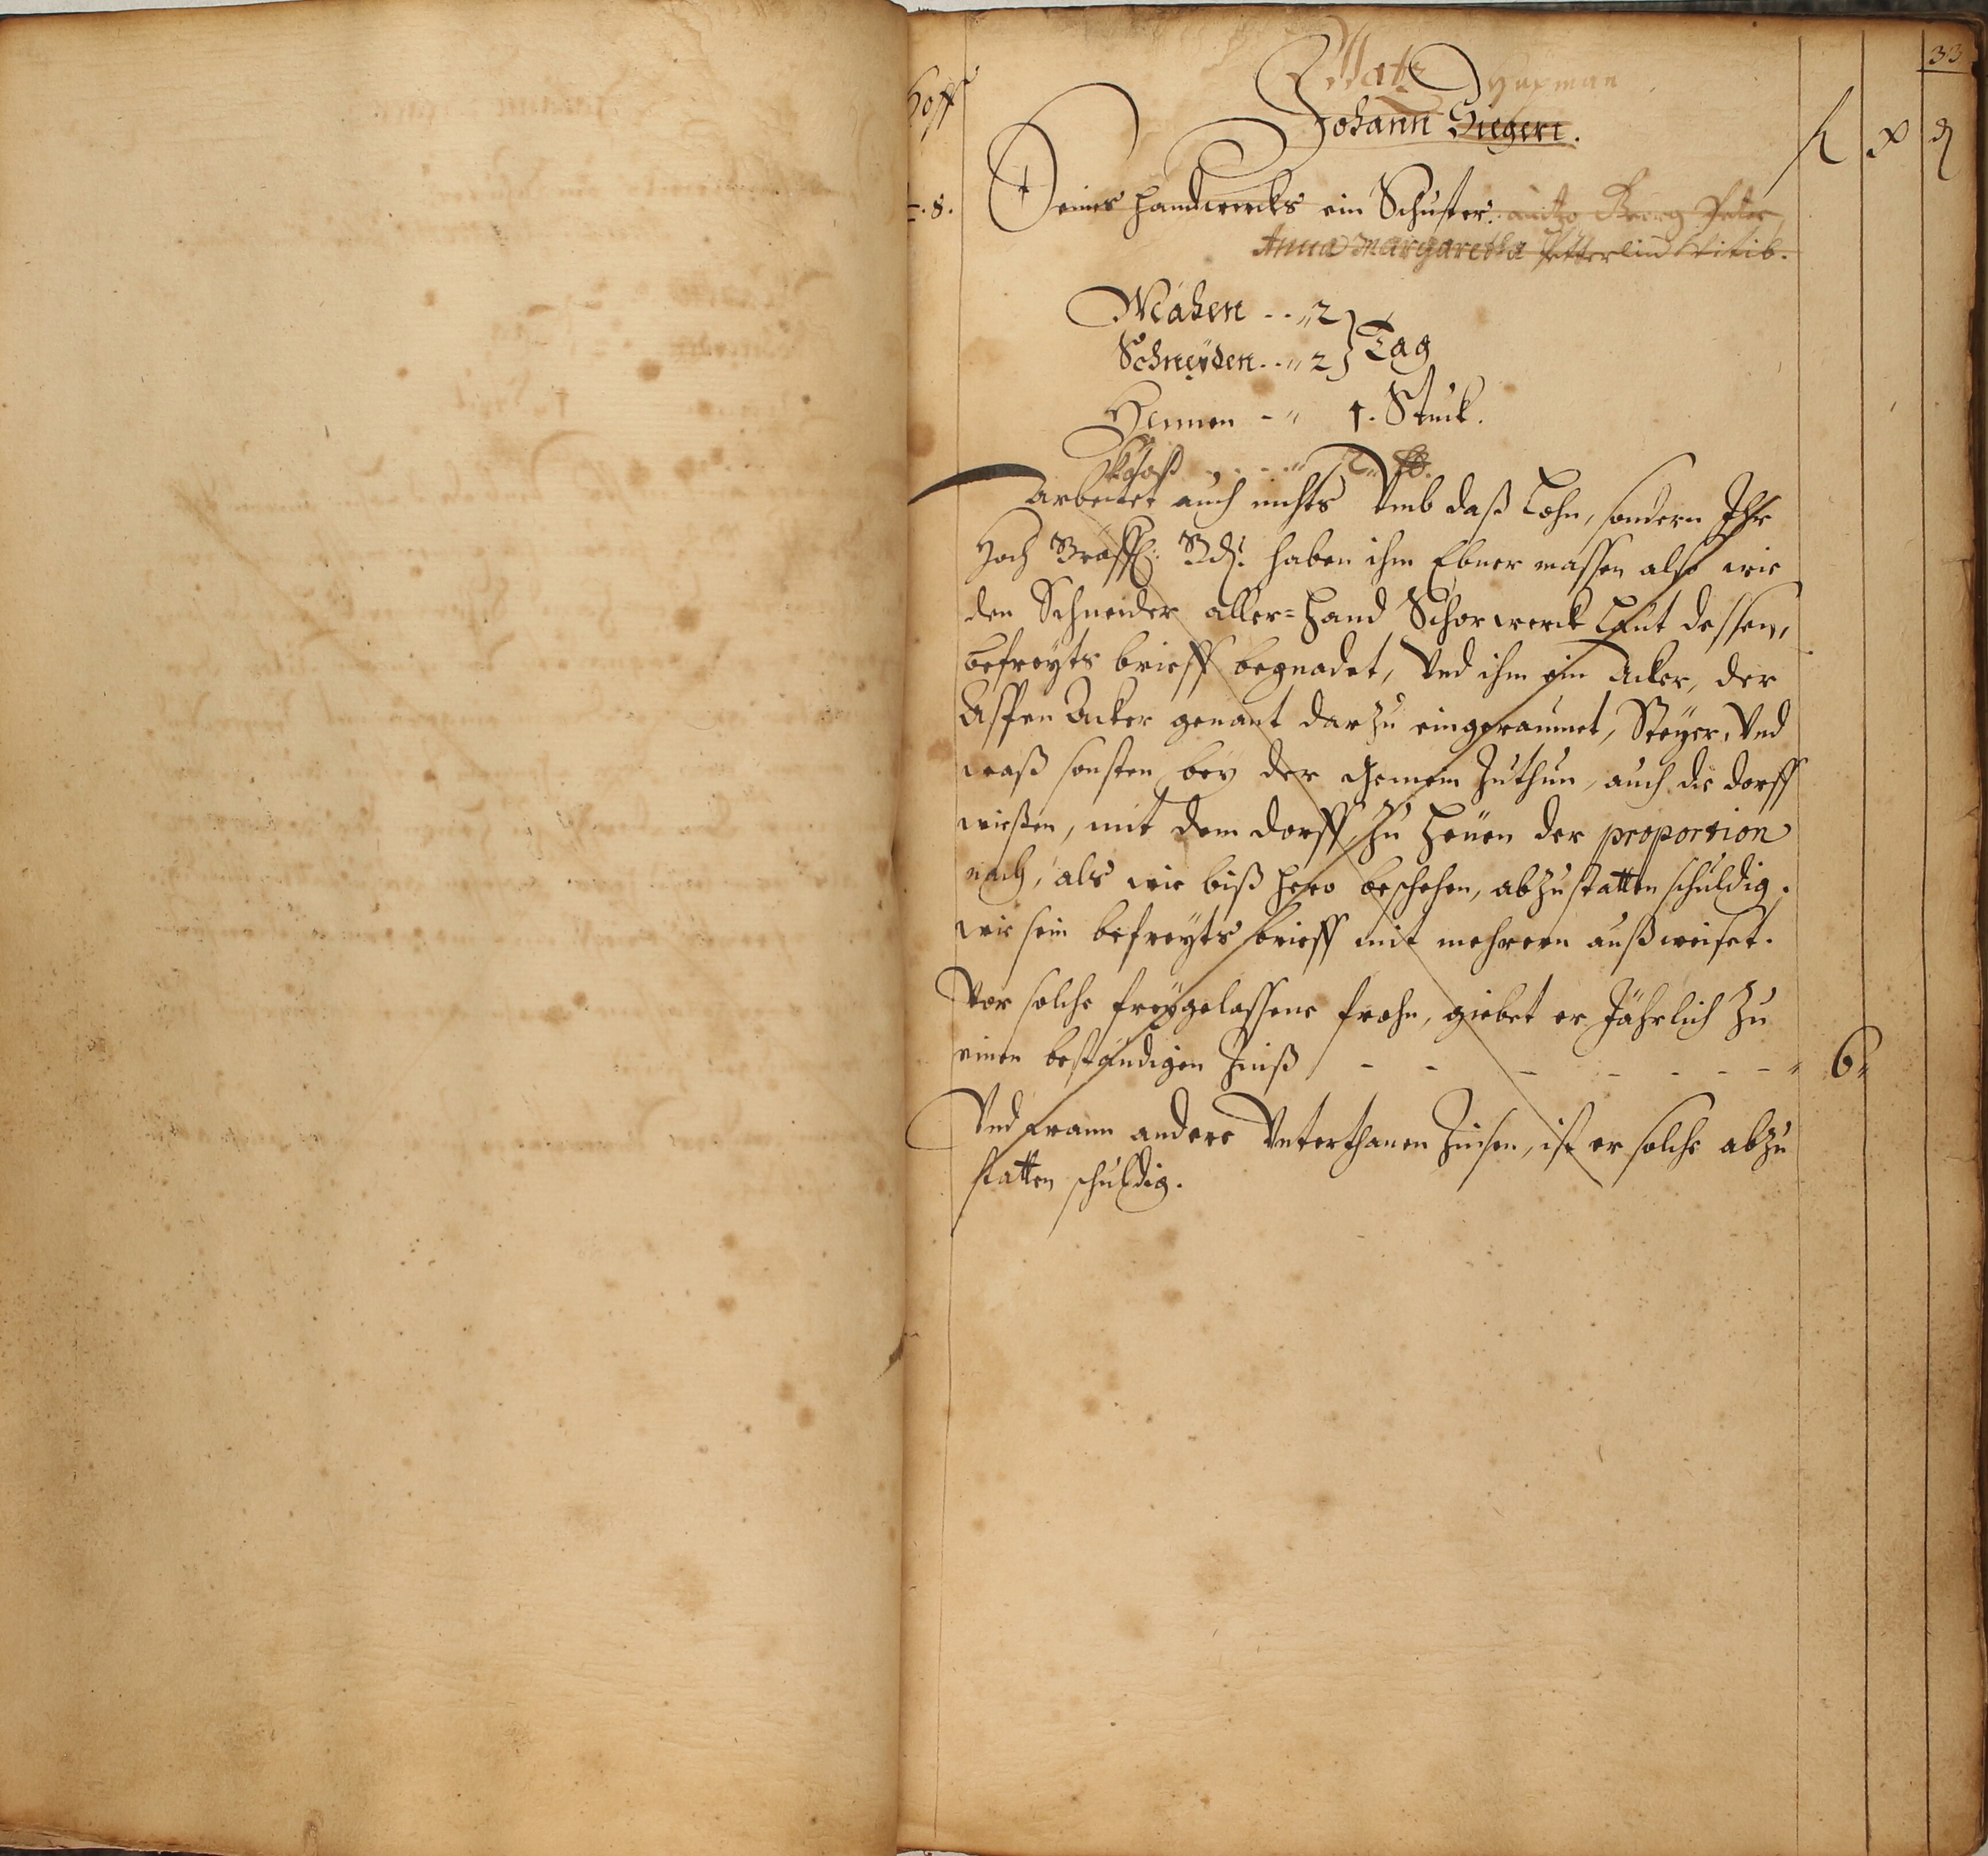 33
Hoff
Matz
Johann Siegert.
f x ₰
8.
Seines handwercks ein Schuster. Georg Peter
Anna Margaretha Peterlin Witib.
Mähen - - „ 2
Schneyden - - „ 2 } Tag
Hennen - „ 1. Stuck.
arbeitet auch nichts Vmb daß Lohn, sondern Ihr
Hoch Gräffl: Gd: haben ihm Ebner massen also wie
den Schneider aller-Hand Schorwerck Laut dessen,
befreyts brieff begnadet, Vnd ihm ein Acker, der
Acker genant darzu eingeraumet, Steyer, Vnd
waß sonsten bey der Gemein Zuthun, auch die dorff
wießen, mit dem dorff, zu Heuen der proportion
nach, als wie biß hero beschehen, abzustatten schuldig.
wie sein befreyts brieff mit mehrern außweiset.
Vor solche freygelassene frohn, giebet er Jährlich Zu
einen beständigen Zinß - - - - - - - „ 6„
Vnd wann andere Vnterthanen Zinsen, ist er solche abzu
statten schuldig.